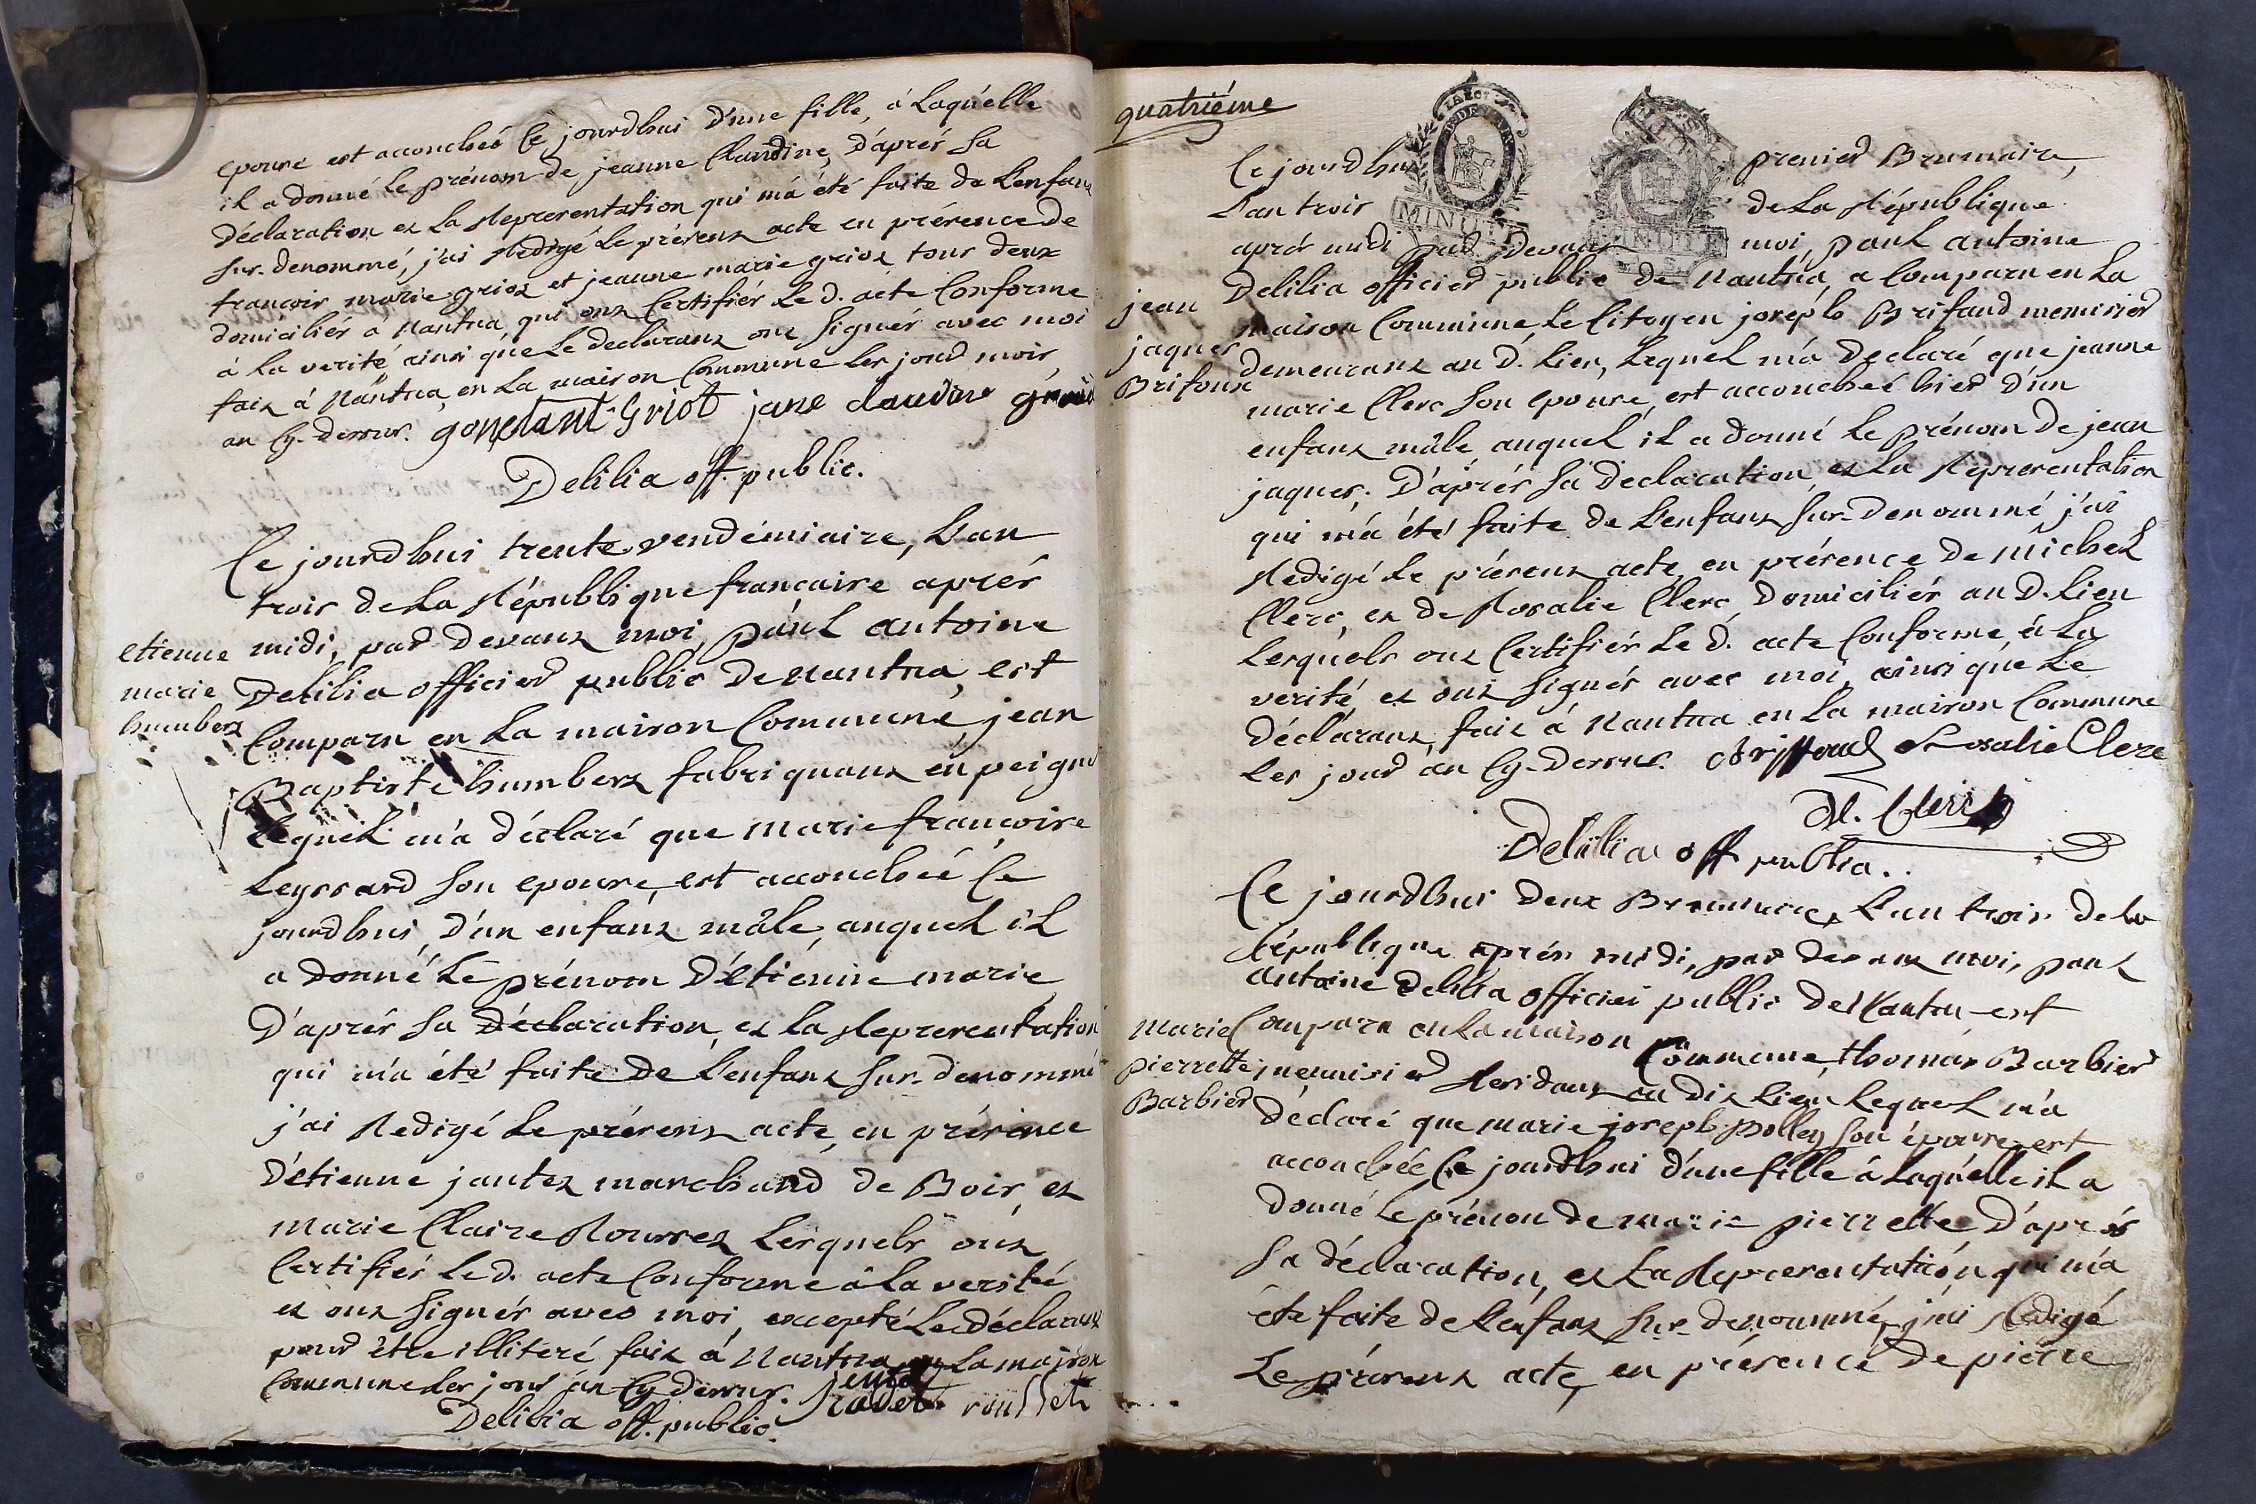 epouse est accouchéé Ce jourdhui d'une fille, á Laquélle
il a donné Le prénom de jeanne Claudine, D'áprér Sa
déclaration et La Représentation qui m'a été faite de L'enfant
Sur-denommé, j'ai Redigé Le présent acte en présence de
francois marie griot et jeanne marie griot tous deux
domiciliés a Nantua, qui ont Certifiér Le d. acte Conforme
à La verité, ainsi que Le declarant ont Signér avec moi
fait á Nantua, en La maison Commune Les jour mois
an Cy-dessus. gonstant Griot jane claudine
Delilia off. public.
Ce jourdhui trente vendémiaire, L'an
trois de La République francaise aprér
midi, par devant moi, paul antoine
Delilia officier public de Nantua, est
Comparu en La maison Commune, jean
Baptiste humbert fabriquant en peigne
Lequel m'a déclaré que marie francoise
Leyssard Son epouse, est accouchéé Ce
jourdhui, d'un enfant mâle, auquel il
a donné Le prénom D'étienne marie
D'áprér Sa déclaration, et La Représentation
qui m'a été faite de L'enfant Sur-denommé
j'ai Redigé Le présent acte, en présence
D'étienne jantet marchand de Bois, et
Marie Claire Rousset Lesquels ont
Certifiér Le d. acte Conforme à La verité
et ont Signér avec moi, excepté Le déclarant
pour être illiteré fait á Nantua en La maison
Commune Les jour an Cy dessus. rousset
Delilia off. public.
etienne
marie
humbert
quatriéme
Ce jourdhui premier Brumaire,
L'an trois de La République
aprés midi par devant moi, paul antoine
Delilia officier public de Nantua, a Comparu en La
maison Commune, Le Citoyen joseph Brifaud menuisier
demeurant au d. Lieu, Lequel m'a declaré que jeanne
marie Clerc Son epouse, est accouchéé hier d'un
enfant mâle auquel il a donné Le prénom de jean
jaques. D'áprér Sa declaration, et La Représentation
qui m'a été faite de L'enfant Sur-denommé j'ai
Redigé Le présent acte, en présence de Michel
Clerc, et de Rosalie Clerc, Domiciliér au d. Lieu
Lesquéls ont Certifiér Le d. acte Conforme, á La
verité et ont Signér avec moi, ainsi que Le
déclarant, fait á Nantua en La maison Commune
Les jour an Cy-dessus. Briffaud Rosalie Clerc
M. Clerc
Delilia off public.
jean
jaques
Brifoux
MINUTE
Ce jourdhui deux Brumaire, L'an trois de La
République aprés midi, par devant moi, paul
antoine Delilia officier public de Nantua est
Comparu en La maison Commune, thomas Barbier
menuisier Residant au dit Lieu, Lequel m'a
déclaré que marie joseph polley Son épouse, est
accouchéé Ce jourdhui d'une fille á Laquélle il a
donné Le prénom de marie pierrette, D'aprés
Sa déclaration, et La Représentation qui m'a
éte faite de L'enfant Sur-denommé, j'ai Redigé
Le présent acte, en présence de pierre
Marie
pierrette
Barbier